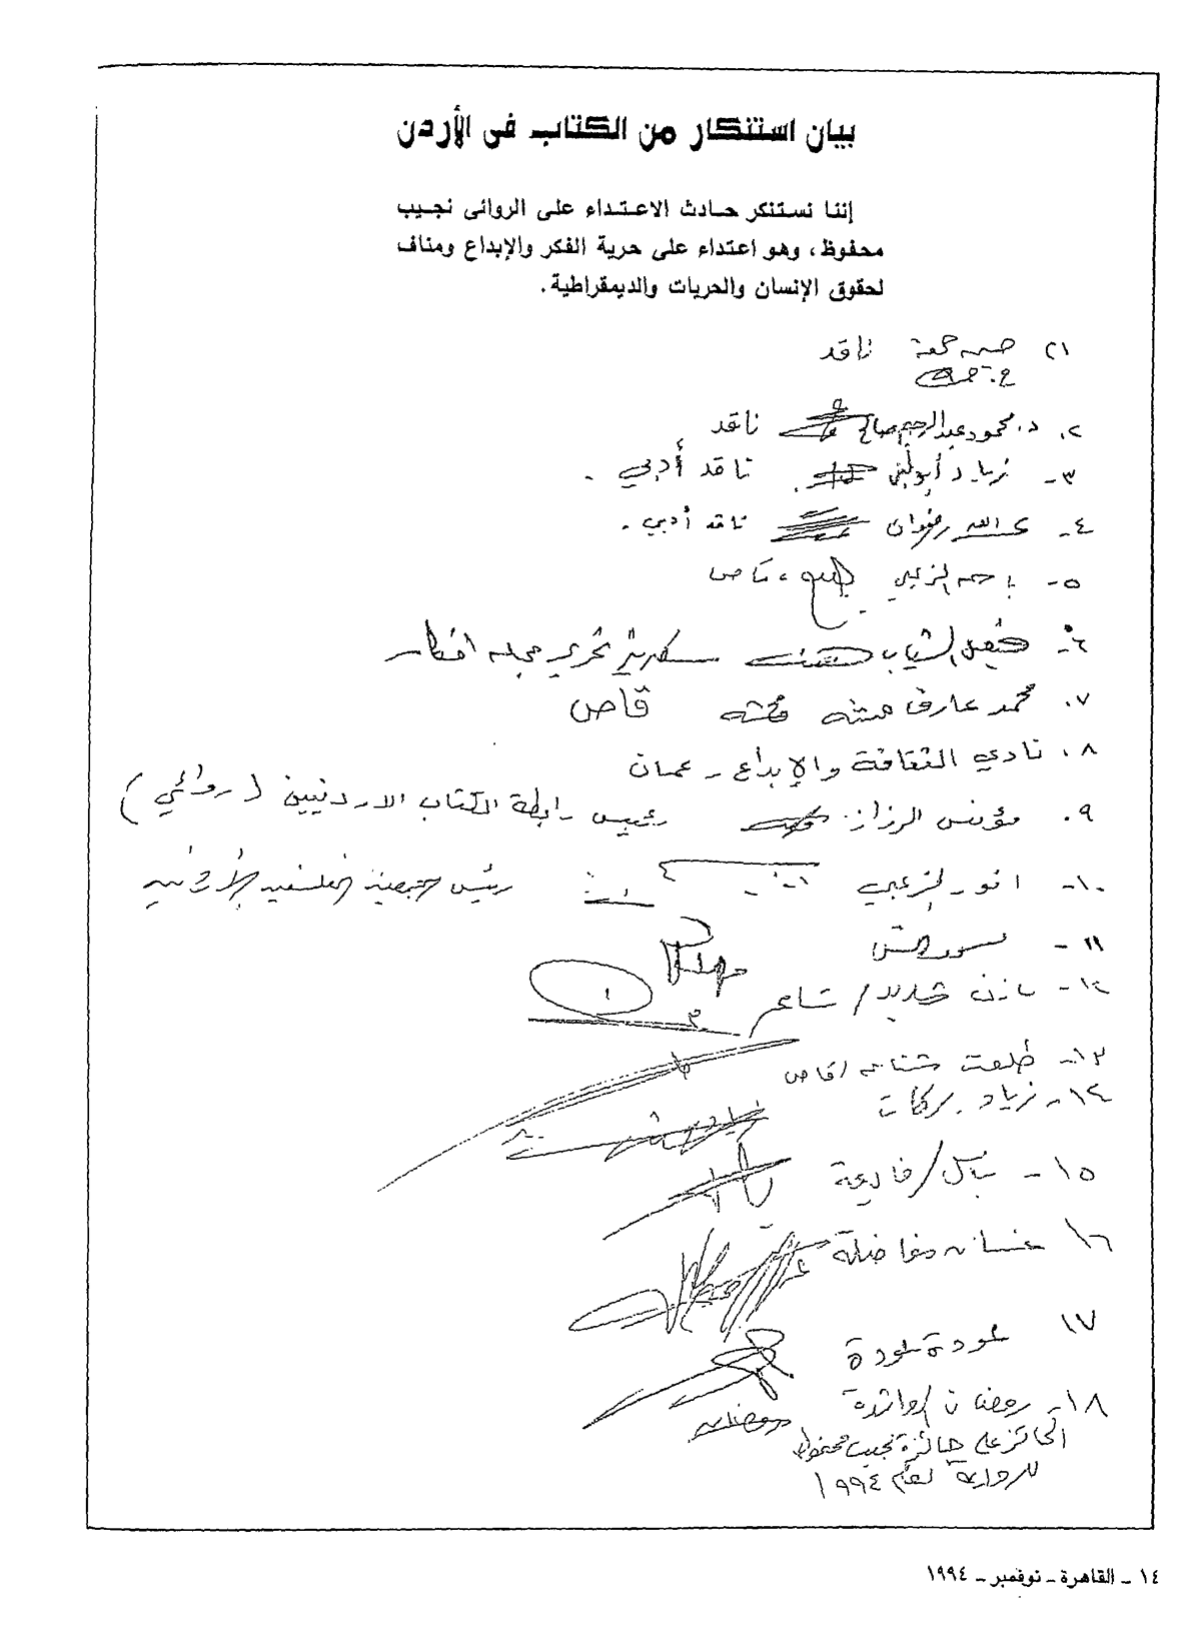 بيان استنكار من الكتاب فى الأردن
إننا نستنكر حادث الاعتداء على الروائى نجيب
محفوظ، وهو اعتداء على حرية الفكر والإبداع ومناف
لحقوق الإنسان والحريات والديمقراطية.
ناقد
٢. د. محمود عبدالرحيم صالح ناقد
٣- زياد أبولبن ناقد أدبي.
٤- عبدالله رضوان ناقد أدبي.
٥- باسم الزعبي قاص
٦- سكرتير تحرير مجلة افكار
٧. محمد عارف قاص
٨. نادي الثقافة والإبداع - عمان
٩. مؤنس الرزاز رئيس رابطة الكتاب الاردنيين (روائي)
١٠- انور الزعبي رئيس الجمعية الفلسفية الأردنية
١١-
١٢- مازن شديد / شاعر
١٣- طلعت شناعة / قاص
١٤- زياد بركات
١٥-
١٦ غسان مفاضلة
١٧ عودة عودة
١٨- رمضان الرواشدة
الحائز على جائزة نجيب محفوظ
للرواية لعام ١٩٩٤
١٤ - القاهرة - نوفمبر - ١٩٩٤